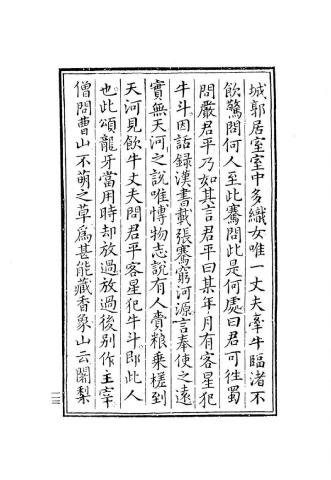 城郭居室室中多織女唯一丈夫牽牛臨渚不
飲驚問何人至此騫問此是何處曰君可往蜀
問嚴君平乃如其言君平曰某年月有客星犯
牛斗因話錄漢書載張騫窮河源言奉使之遠
實無天河之說唯博物志說有人賫粮乘槎到
天河見飲牛丈夫問君平客星犯牛斗即此人
也此頌龍牙當用時却放過放過後別作主宰
僧問曹山不萌之草爲甚能藏香象山云闍梨